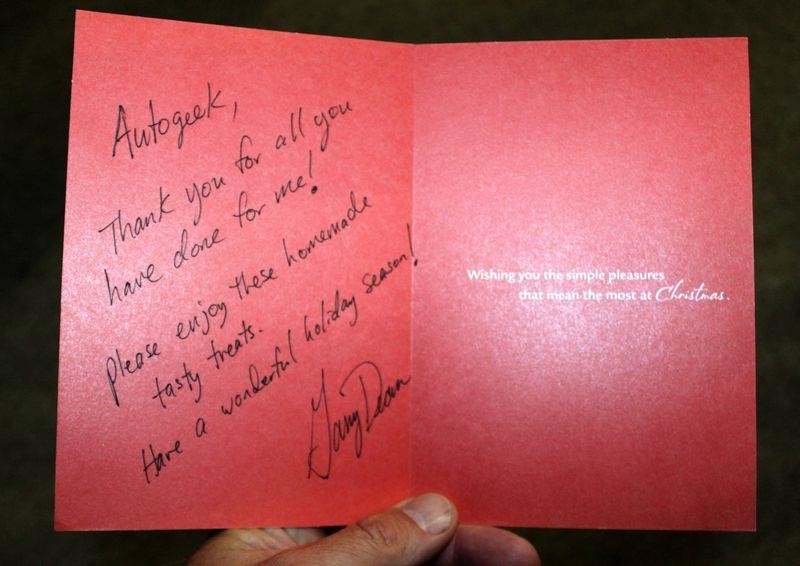 Autogeek,
Thank you for all you
have done for me!
please enjoy these homemade
tasty treats.
Have a wonderful holiday season!
Garry Dean
Wishing you the simple pleasures
that mean the most at Christmas.